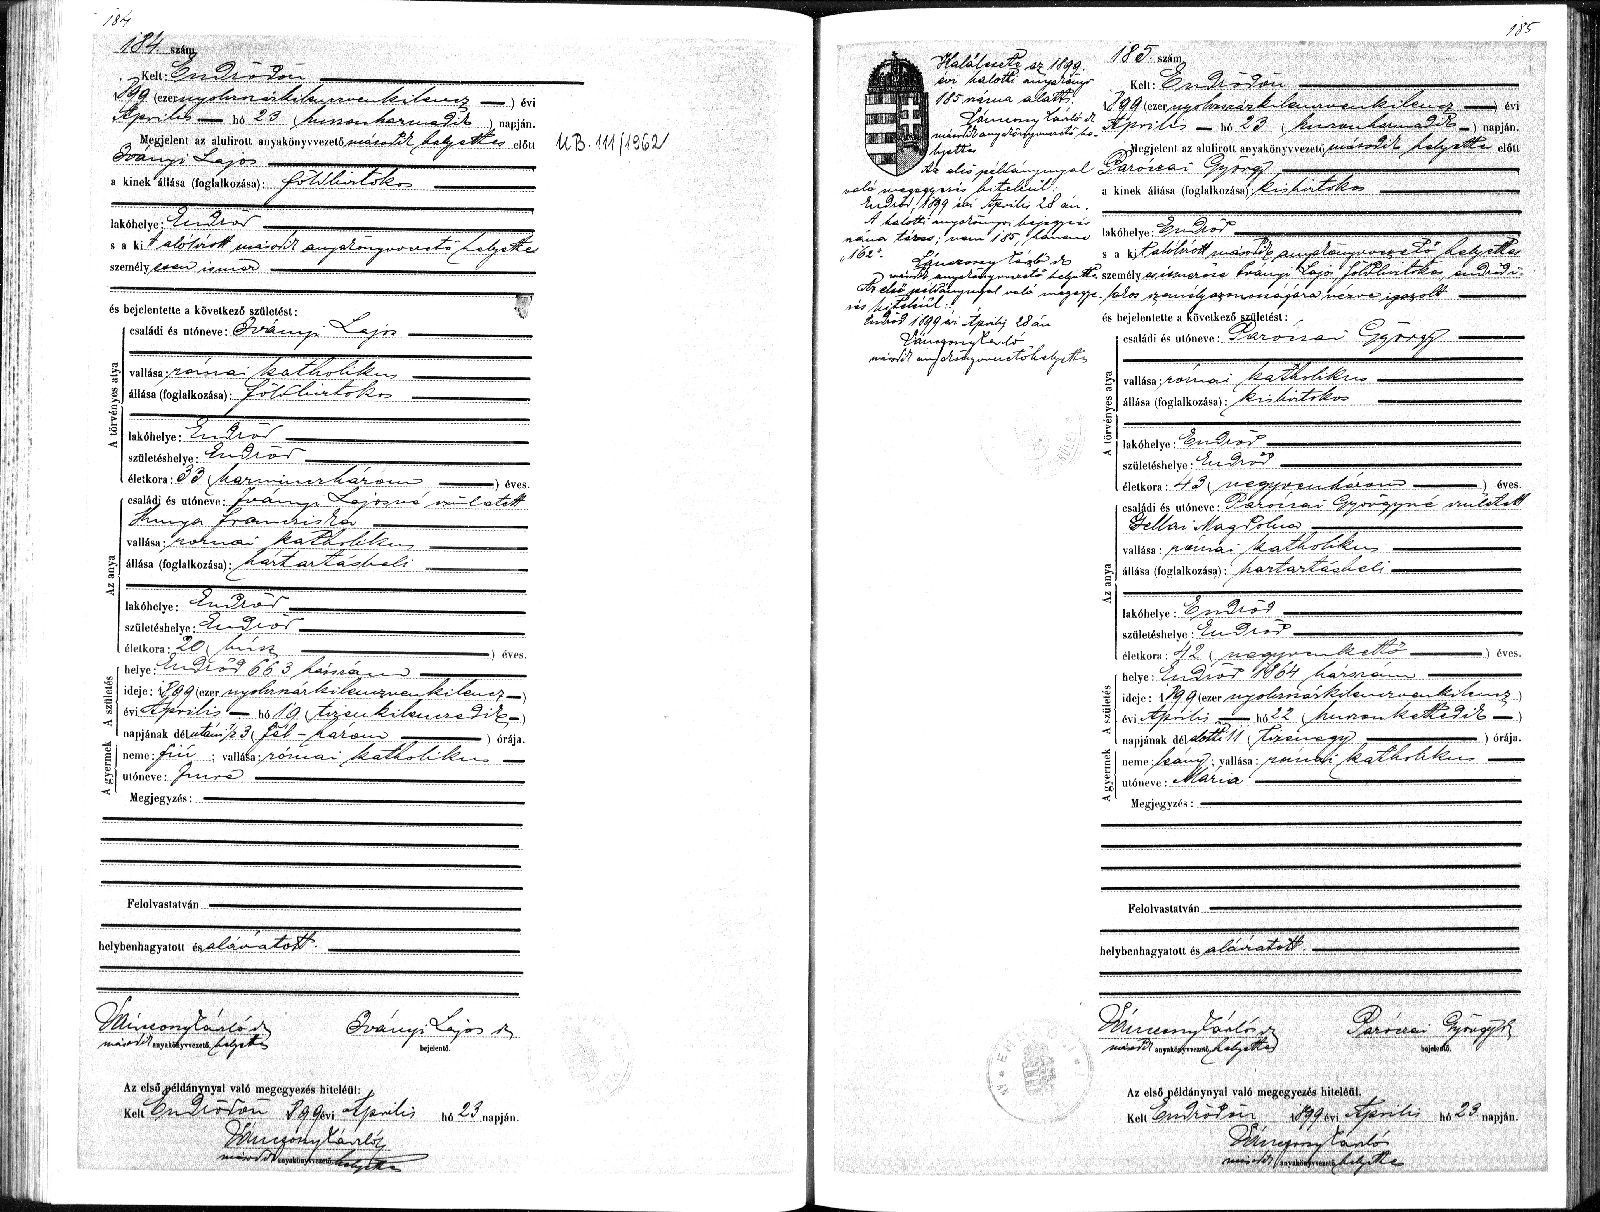 184
184. szám.
Kelt: Endrődön
1899 (ezer nyolcszázkilenczvenkilencz) évi
Április hó 23 (huszonharmadik) napján.
Megjelent az alulirott anyakönyvvezető második helyettes előtt
Iványi Lajos
a kinek állása (foglalkozása): földbirtokos
lakóhelye: Endrőd
s a kit alólírott második anyakönyvvezető helyettes
személyesen ismer
és bejelentette a következő születést:
A törvényes atya
családi és utóneve: Iványi Lajos
vallása: római katholikus
állása (foglalkozása): földbirtokos
lakóhelye: Endrőd
születéshelye: Endrőd
életkora: 33 (harminczhárom) éves.
Az anya
családi és utóneve: Iványi Lajosné született
Hunya Francziska
vallása: római katholikus
állása (foglalkozása): háztartásbeli
lakóhelye: Endrőd
születéshelye: Endrőd
életkora: 20 (húsz) éves.
A születés
helye: Endrőd 663 házszám
ideje: 1899 (ezer nyolcszázkilenczvenkilencz)
évi Április hó 19 (tizenkilenczedik)
napjának délutáni ½3 (fél-három) órája.
A gyermek
neme: fiú; vallása: római katholikus
utóneve: Imre
Megjegyzés:
Felolvastatván
helybenhagyatott és aláíratott.
Iványi Lajos
második anyakönyvvezető helyettes
bejelentő.
Az első példánynyal való megegyezés hiteléül:
Kelt Endrődön 1899 évi Április hó 23 napján.
második anyakönyvvezető helyettes
UB. 111/1962
185
Haláleset az 1899.
évi halotti anyakönyv
185 száma alatt.
második anyakönyvvezető he-
lyettes
Az első példánynyal
való megegyezés hiteléül.
Endrőd, 1899 évi Április 28 án.
A halotti anyakönyvi bejegyzés
száma téves; nem 185, hanem
"162".
második anyakönyvvezető helyettes
Az első példánynyal való megegye-
zés hiteléül.
Endrőd 1899 évi Április 28 án
második anyakönyvvezető helyettes
185. szám.
Kelt: Endrődön
1899 (ezer nyolcszázkilenczvenkilencz) évi
Április hó 23 (huszonharmadik) napján.
Megjelent az alulirott anyakönyvvezető második helyettes előtt
Paróczai György
a kinek állása (foglalkozása): kisbirtokos
lakóhelye: Endrőd
s a kit alólírott második anyakönyvvezető helyettes
személyes ismerőse Iványi Lajos földbirtokos endrődi
lakos személyazonosságára nézve igazolt
és bejelentette a következő születést:
A törvényes atya
családi és utóneve: Paróczai György
vallása: római katholikus
állása (foglalkozása): kisbirtokos
lakóhelye: Endrőd
születéshelye: Endrőd
életkora: 43 (negyvenhárom) éves.
Az anya
családi és utóneve: Paróczai Györgyné született
Gellai Magdolna
vallása: római katholikus
állása (foglalkozása): háztartásbeli
lakóhelye: Endrőd
születéshelye: Endrőd
életkora: 42 (negyvenkettő) éves.
A születés
helye: Endrőd 1864 házszám
ideje: 1899 (ezer nyolcszázkilenczvenkilencz)
évi Április hó 22 (huszonkettedik)
napjának délelőtti 11 (tizenegy) órája.
A gyermek
neme: leany; vallása: római katholikus
utóneve: Mária
Megjegyzés:
Felolvastatván
helybenhagyatott és aláíratott.
Paróczai György
második anyakönyvvezető helyettes
bejelentő.
Az első példánynyal való megegyezés hiteléül.
Kelt Endrődön 1899 évi Április hó 23 napján.
második anyakönyvvezető helyettes